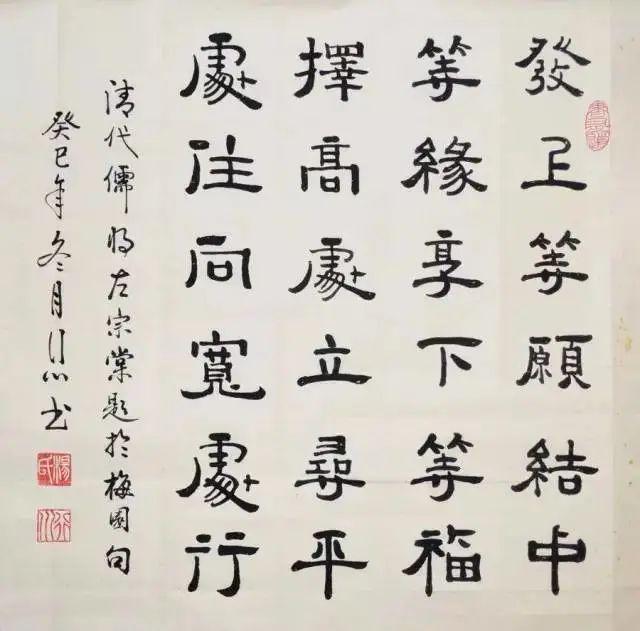 發上等願結中
等緣享下等福
擇高處立尋平
處住向寬處行
清代儒将左宗棠題於梅園句
癸巳年冬月行心书
楊氏